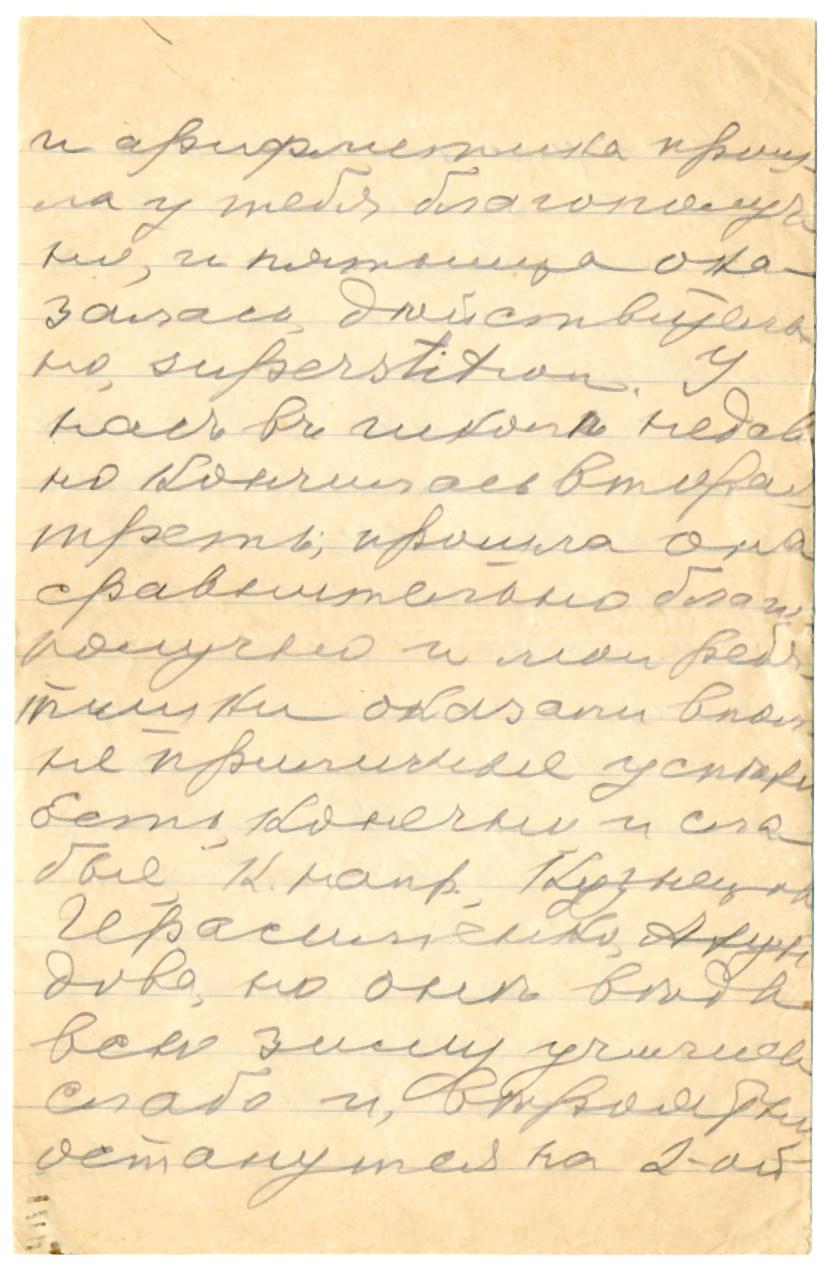 и арифметика прош-
ла у тебя благополуч
но, и пятница ока-
залась, действитель-
но, superstition. У
насъ въ школѣ недав
но кончилась вторая
треть; прошла она
сравнительно благо-
получно и мои ребя-
тишки оказали впол-
не приличные успѣхи
Есть, конечно и сла
бые, к. напр. Кузнецов
Герасименко,
дова, но онѣ вѣдь
всю зиму учились
слабо и,
останутся на 2-ой